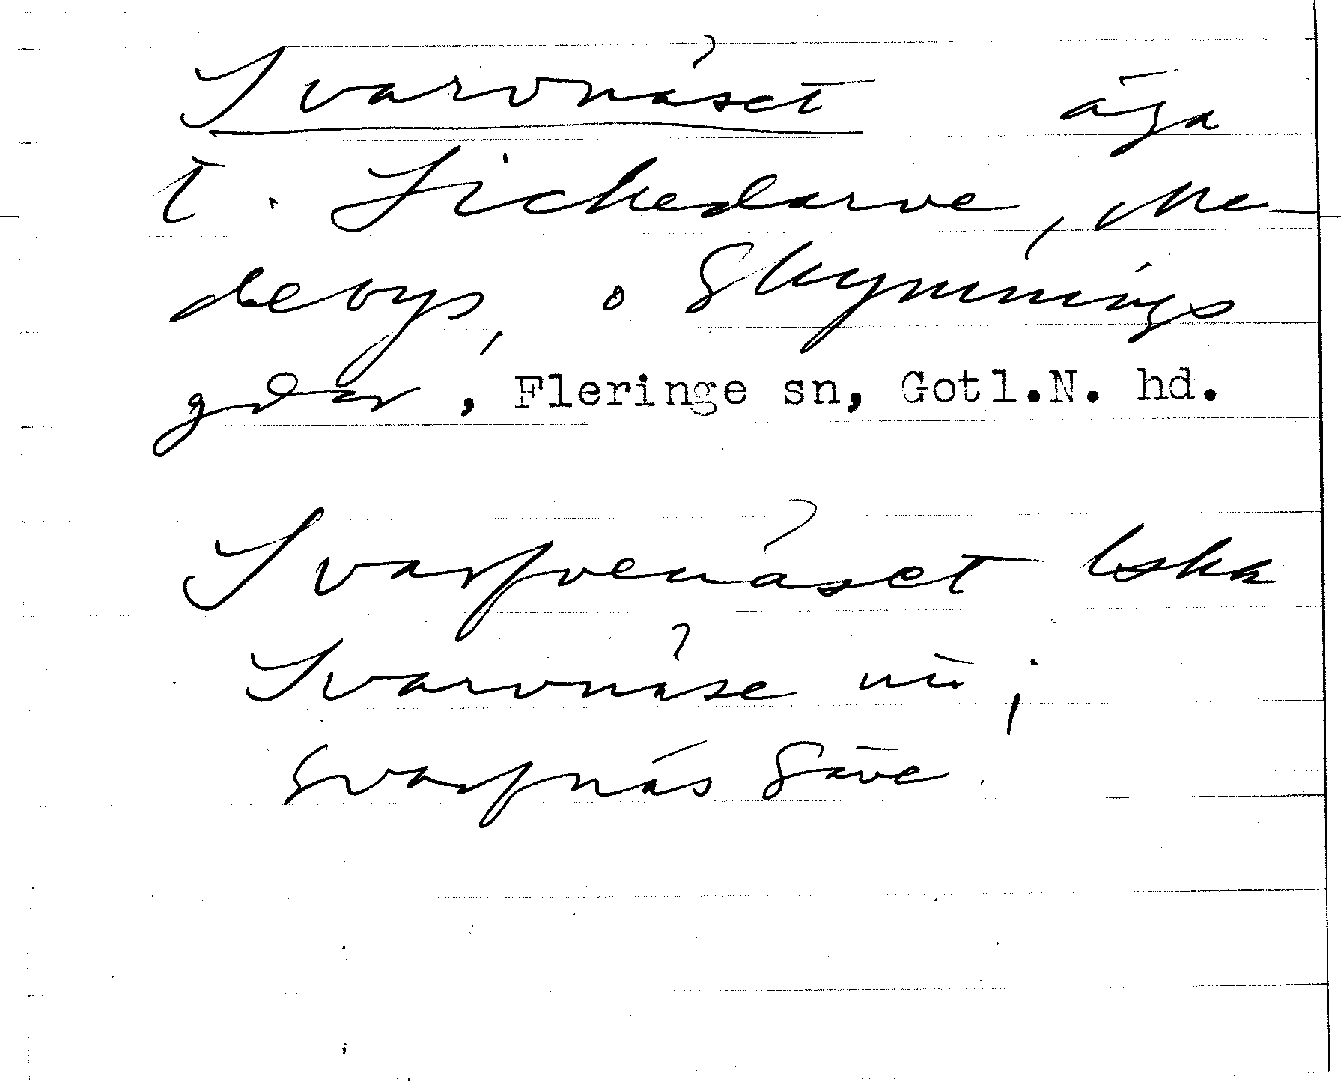 Svarvnäset äga
t. Lickedarve, Me-
debys, o Skymmings
gdar, Fleringe sn, Gotl.N. hd.
Svarfvenäset lska
Svarvnäse nu;
Svarfnäs Säve